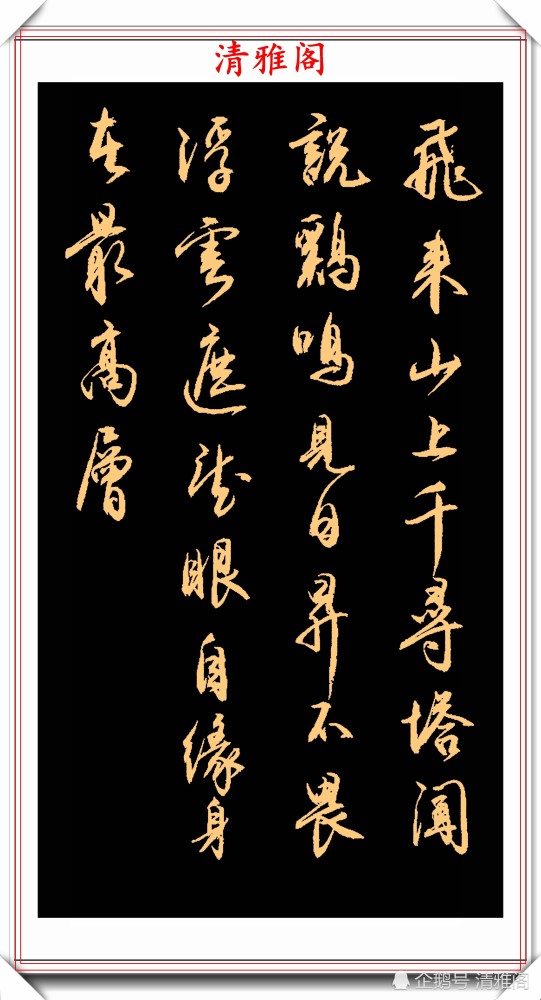 清雅阁
飛來山上千尋塔聞
說鷄鳴見日昇不畏
浮雲遮望眼自緣身
在最高層
企鹅号 清雅阁